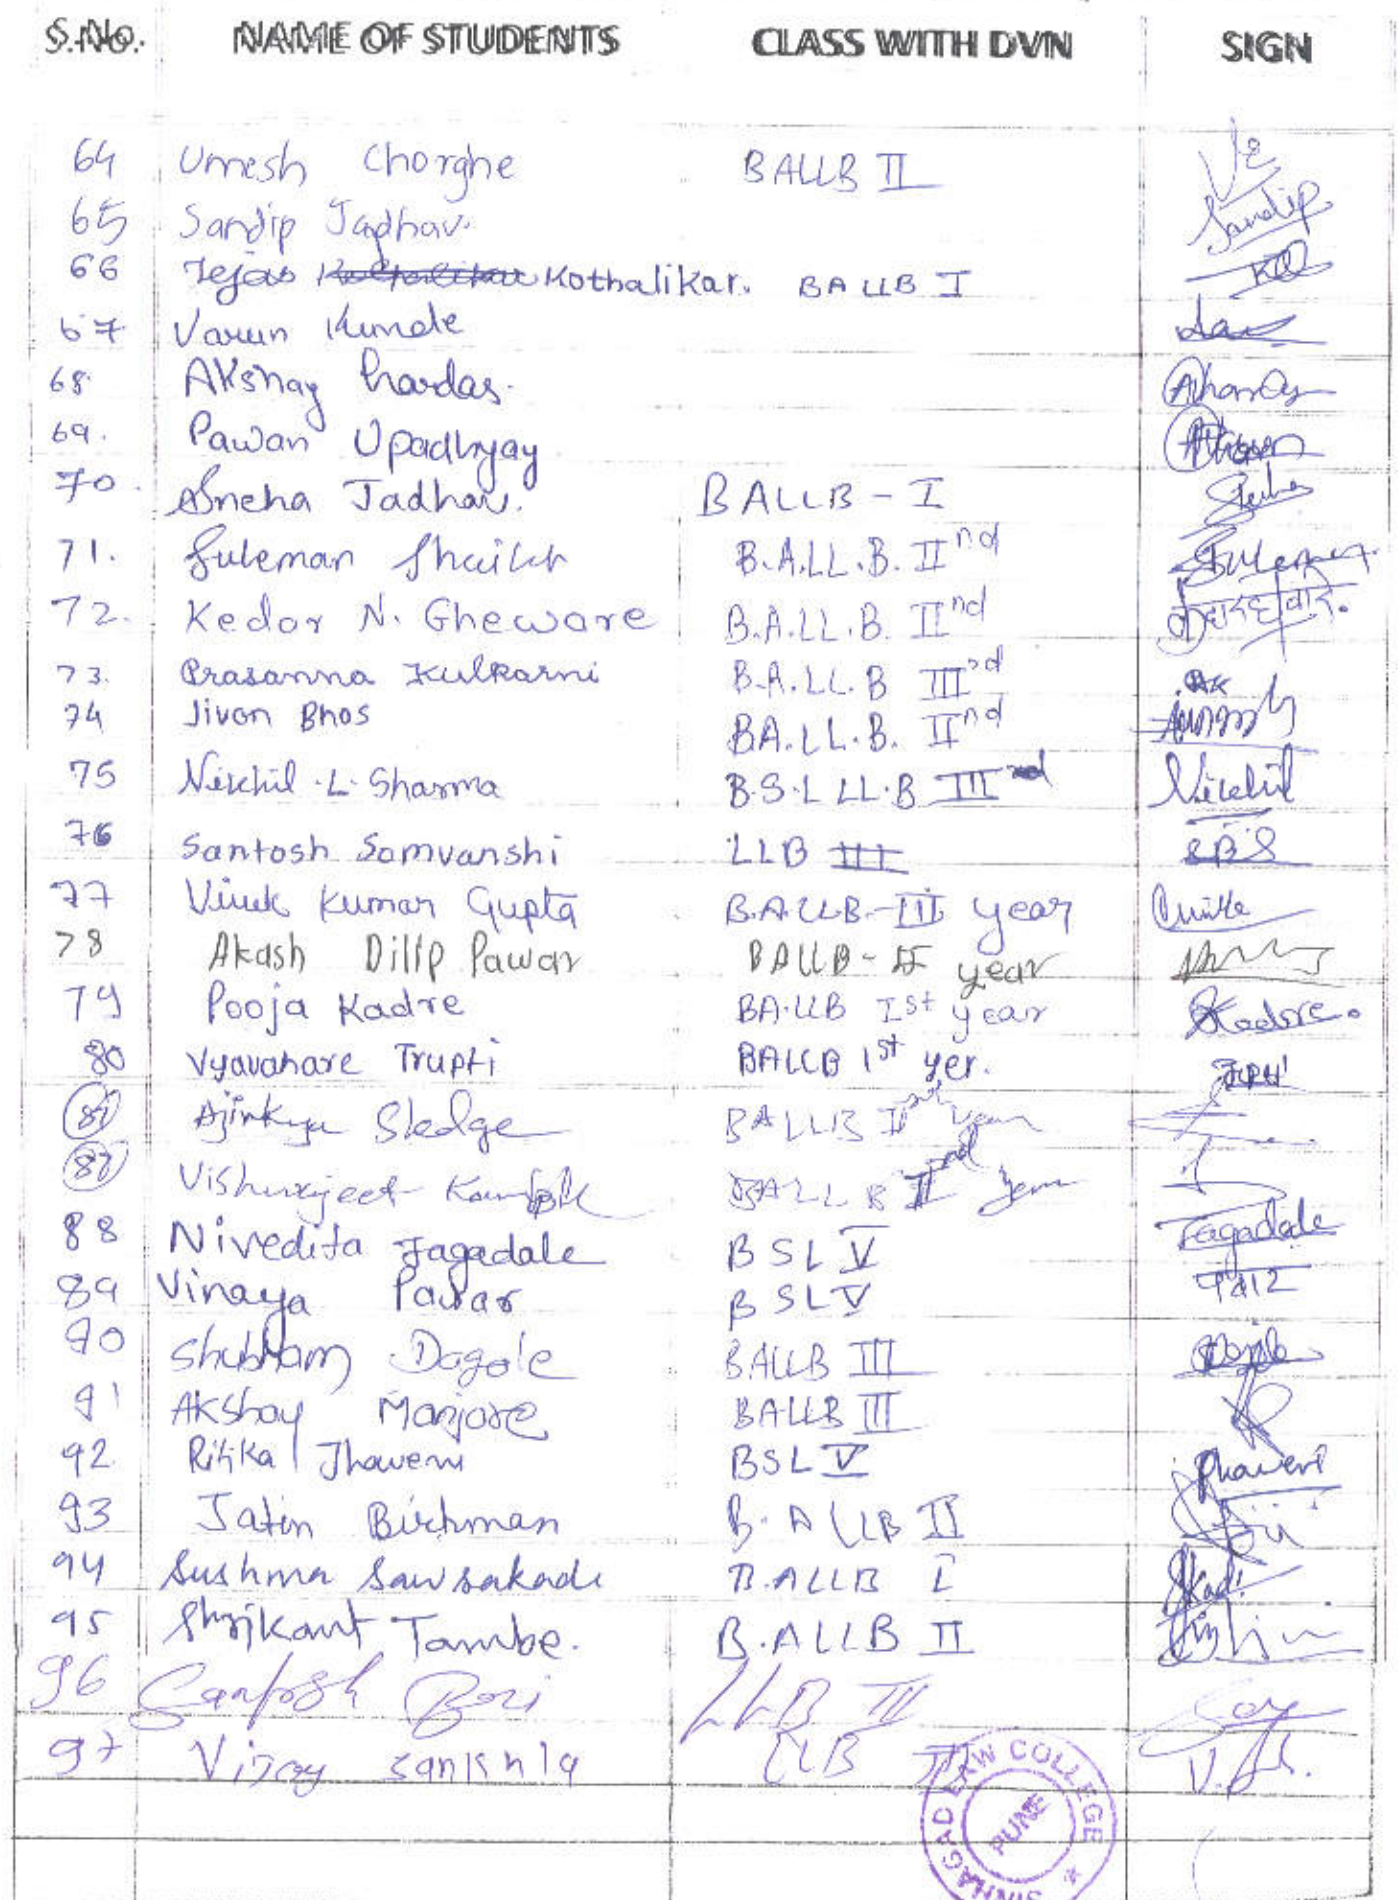 S.No. NAME OF STUDENTS CLASS WITH DVN SIGN
64 Umesh Chorghe BALLB II
65 Sandip Jadhav. Sandip
66 Tejas Kothalikar. BALLB I
67 Varun Kumde
68 Akshay hardas.
69. Pawan Upadhyay
70. Sneha Jadhav. BALLB - I
71. Suleman Shaikh B.A.LL.B. IInd Suleman
72. Kedar N. Gheware B.A.LL.B. IInd
73. Prasanna Kulkarni B.A.LL.B IIIrd
74 Jivan Bhos BA.LL.B. IInd
75 Nikhil .L. Sharma B.S.L LL.B IIIrd Nikhil
76 Santosh Somvanshi LLB III SBS
77 Vivek Kumar Gupta B.A.LLB.-III year
78 Akash Dilip Pawar BALLB - II year
79 Pooja Kadre BA.LLB Ist year Kadre.
80 Vyavahare Trupti BALLB 1st yer.
81 Ajinkya Sledge BALLB IInd year
82 Vishwajeet BALLB IInd year
88 Nivedita Jagadale BSL V Jagadale
89 Vinaya Pawar BSL V
90 Shubham Dagole BALLB III
91 Akshay Manjare BALLB III
92 Ritika Jhaveri BSL V Jhaveri
93 Jatin Birhman B.ALLB II
94 Sushma Sawsakade B.ALLB I
95 Shrikant Tambe. B.ALLB II
96 Santosh Bori LLB III
97 Vijay Sankhla LLB III
SINHAGAD LAW COLLEGE *
PUNE